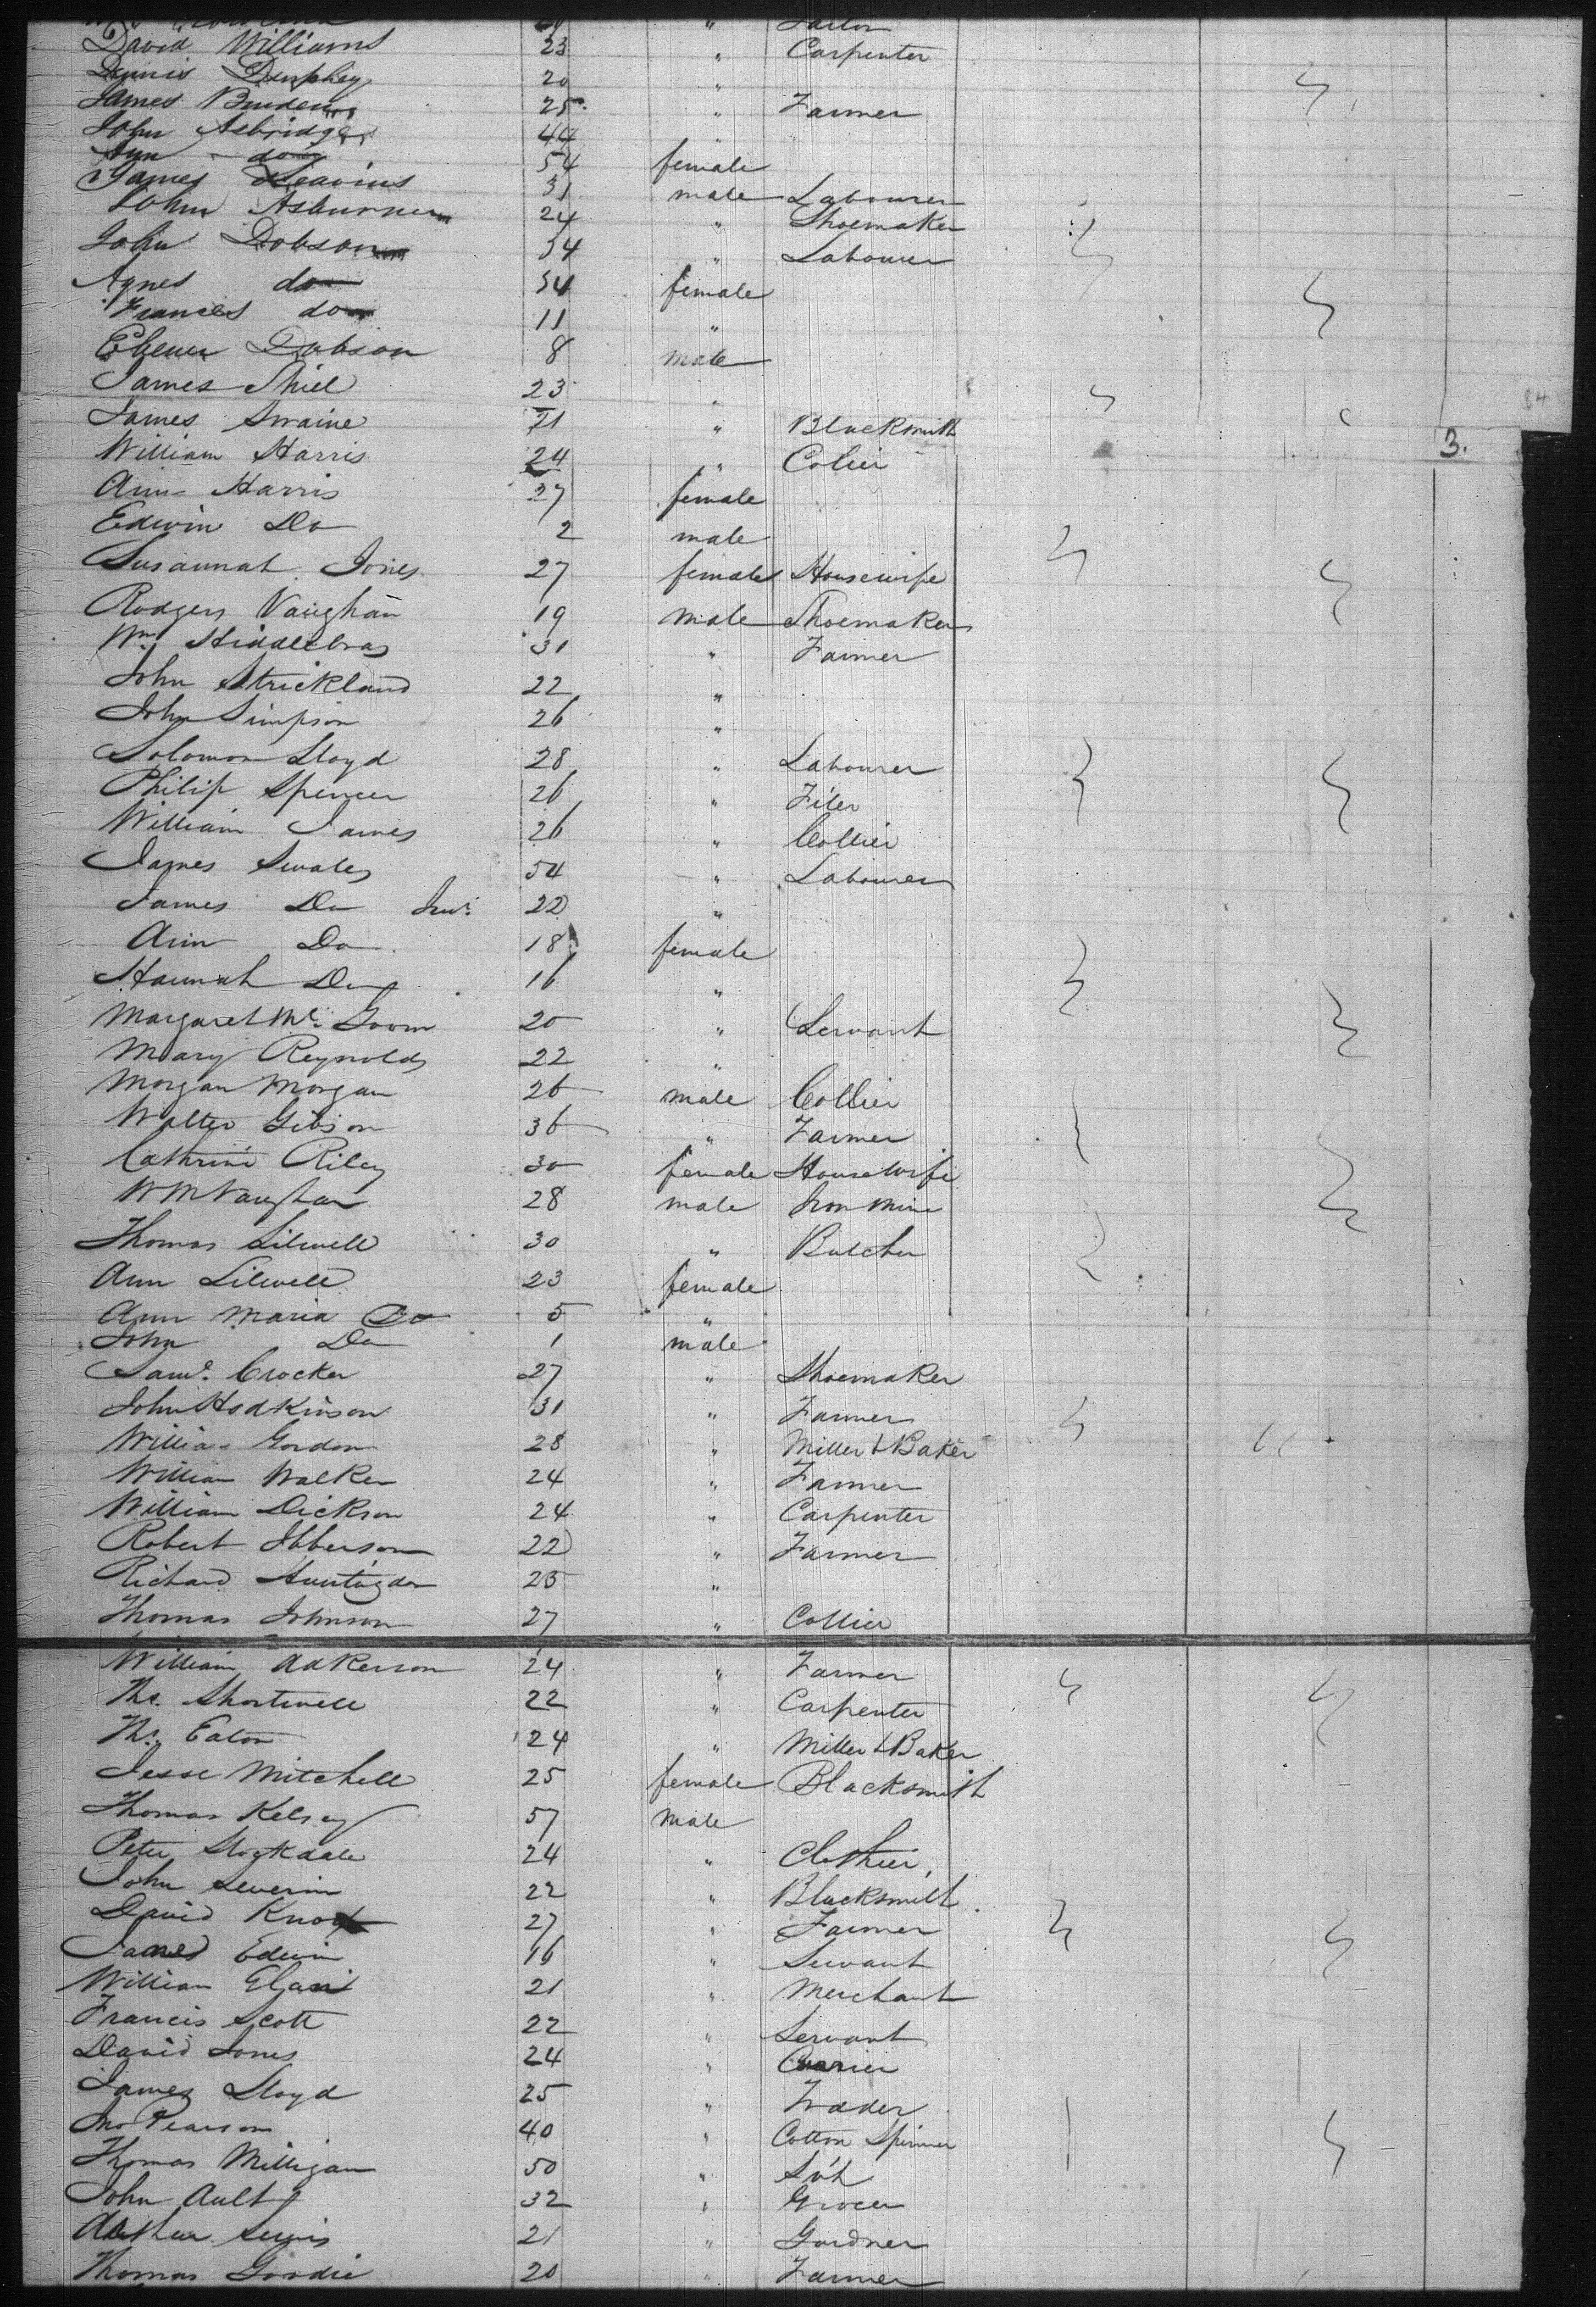 Tailor
David Williams 23 " Carpenter
Dennis Dunphey 20 "
James 25 " Farmer
John Asbridge 44 "
Ann do 54 female
James 31 male Labourer
John Asburner 24 " Shoemaker
John Dobson 34 " Labourer
Agnes do 34 female
Frances do 11 "
Ebener Dobson 8 male
James Shiel 23 "
James Swaine 21 " Blacksmith
3.
William Harris 24 " Colier
Ann Harris 27 female
Edwin Do 2 male
Susannah Jones 27 female Housewife
Rodgers Vaughan 19 male Shoemaker
Wm. Hiddlebras 31 " Farmer
John Strickland 22 "
John Simpson 26 "
Solomon Lloyd 28 " Labourer
Philip Spencer 26 " Filer
William James 26 " Collier
James Swales 54 " Labourer
James Do Junr. 22 "
Ann Do 18 female
Hannah Do 16 "
Margaret Mc. 20 " Servant
Mary Reynolds 22 "
Morgan Morgan 26 male Collier
Walter Gibson 36 " Farmer
Cathrine Riley 30 female Housewife
Wm Vaughan 28 male Iron Mine
Thomas Lilwell 30 " Butcher
Ann Lilwell 23 female
Ann Maria Do 5 "
John Do 1 male
Saml. Crocker 27 " Shoemaker
John Hodkinson 31 " Farmer
William Gordon 28 " Miller & Baker
William Walker 24 " Farmer
William Dickson 24 " Carpenter
Robert Ibberson 22 " Farmer
Richard Huntigdon 25 "
Thomas Johnson 27 " Collier
William Adkerson 24 " Farmer
Ths. Shortwell 22 " Carpenter
Ths. Eaton 24 " Miller & Baker
Jesse Mitchell 25 female Blacksmith
Thomas Kelsey 57 male
Peter Stockdale 24 " Clothier
John Severin 22 " Blacksmith
David Knox 27 " Farmer
James Edwin 16 " Servant
William 21 " Merchant
Francis Scott 22 " Servant
David Jones 24 "
James Lloyd 25 " Trader
Jno Pearson 40 " Cotton Spinner
Thomas Milligan 50 "
John Ault 32 " Grocer
Arthur Lewis 21 " Gardner
Thomas Goodie 20 " Farmer